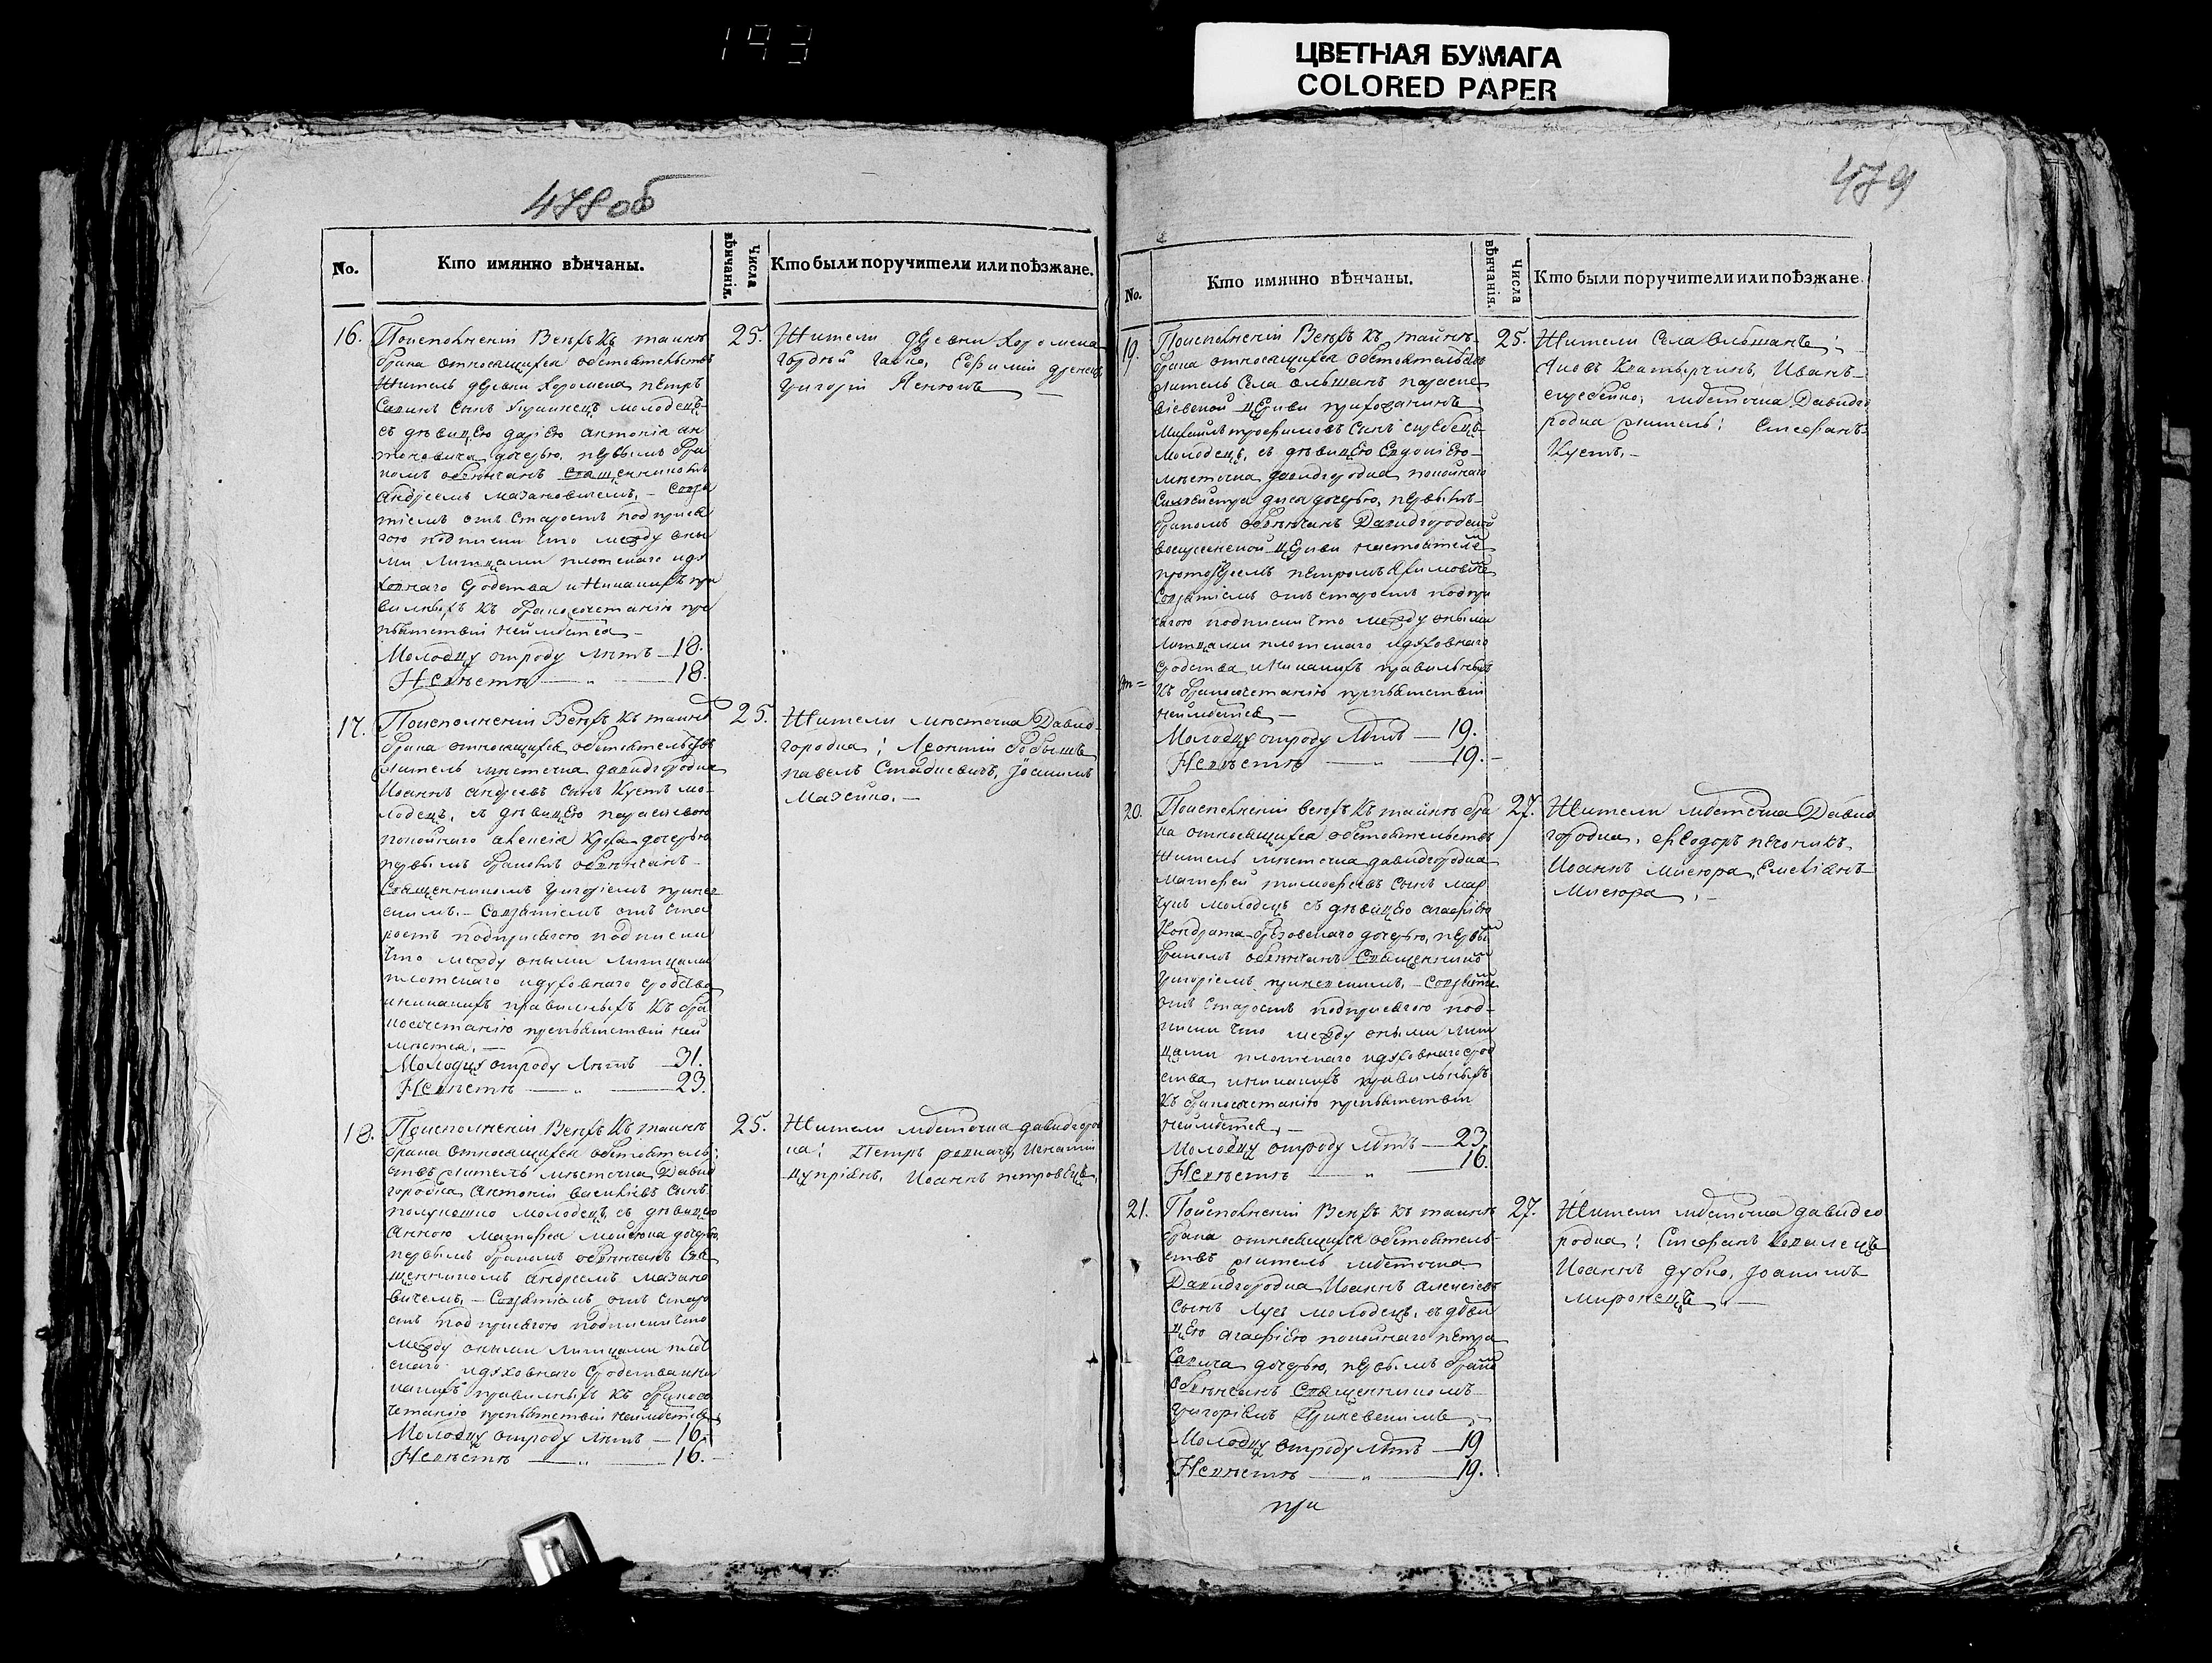 193
ЦВЕТНАЯ БУМАГА
COLORED PAPER
478 об
No.
Кто имянно вѣнчаны.
Числа вѣнчанія.
Кто были поручители или поѣзжане.
16.
Поисполненіи Всѣхъ Къ таинѣ
брака относящихся обстоятельствъ
Житель дѣревни Хоромска пѣтръ
Савинъ Сынъ молодецъ
съ дѣвицѣю даріею антонія ан
дочерью, пѣрвымъ бра
комъ обвѣнчанъ священникомъ
андреемъ мазановичемъ, – Совзя
тіемъ отъ Старостъ подприся
гою подписки что между оны
ми Лиццами плотскаго идх
ховнаго Сродства и Никакихъ пра
вилныхъ къ бракосочетанію пре
пятствій неимѣется –
Молодцу отроду лѣтъ – 18.
Невѣстѣ – „ – 18.
25.
Жители дѣревни Хоромска
Ефимій
григорій
17.
Поисполненіи Всѣхъ Къ таинѣ
брака относящихся обстоятельствъ
житель мѣстечка давидгородка
Иоаннъ андреевъ сынъ Кустъ мо-
лодецъ, съ дѣвицѣю параскевою
покойнаго алексія дочерью
первымъ бракомъ обвѣнчанъ
Священникомъ григоріемъ
– Совзятіемъ отъ Ста
ростъ подприсягою подписки
Что между оными лиццами
плотскаго идуховнаго сродства
иникакихъ правильныхъ Къ бра
косочетанію препятствій неи
мѣется, –
Молодцу отроду Лѣтъ – 31.
Невѣстѣ – „ – 23.
25.
Жители мѣстечка Давид-
городка; Леонтій
павелъ Стадкевичъ, Іоакимъ
Мажейко. –
18.
Поисполненіи Всѣхъ Къ таинѣ
брака Относящихся обстоятель-
ствъ житель мѣстечка Давид
городка Антоній василіевъ сынъ
полукошко молодецъ, съ дѣвицѣю
Анною Матфея дочерью,
первымъ бракомъ обвѣнчанъ Свя
щенникомъ андреемъ Мазано
вичемъ, – Совзятіемъ отъ Старо
стъ подприсягою подписки что
между оными лиццами плот
скаго идуховнаго Сродства ини
какихъ правилныхъ къ бракосо
четанію препятствій неимѣется,
Молодцу отроду лѣтъ – 16.
Невѣстѣ – „ – 16.
25.
Жители мѣстечка давидгород
ка: Пѣтръ Игнатій
Иоаннъ петровѣцъ,
479
No.
Кто имянно вѣнчаны.
Числа вѣнчанія.
Кто были поручители или поѣзжане.
19.
Поисполненіи Всѣхъ Къ таинѣ
брака относящихся обстоятельствъ
житель Села ольшанъ параске
віевской цѣркви прихожанинъ
Михаилъ трофимовъ Сынъ
молодецъ, съ дѣвицѣю Евдокіею
мѣстечка давидгородка покойнаго
Силвестра дочерью, первымъ
бракомъ обвѣнчанъ Давидгородской
воскресенской цѣркви настоятеле
протоіереемъ пѣтромъ
Совзятіемъ отъ старостъ подпри
сягою подписки Что между оными
Лиццами плотскаго идуховнаго
Сродства иникакихъ правильныхъ
къ бракосочетанію препятствій
неимѣется –
Молодцу отроду Лѣтъ – 19.
Невѣстѣ – „ – 19.
25.
Жители Села ольшанъ;
Яковъ Иванъ
мѣстечка Давидго
родка житель: Стефанъ
Кустъ, –
20.
Поисполненіи всѣхъ къ таинѣ бра
ка относящихся обстоятельствъ
Житель мѣстечка давидгородка
Матфей тимофеевъ сынъ мар
молодецъ съ дѣвицѣю агафіею
Кондрата дочерью, пѣрвы
бракомъ обвѣнчанъ Священнико
григоріемъ – Совзятіе
отъ Старостъ подприсягою под-
писки что между оными лиц
цами плотскаго идуховнаго срод
ства, иникакихъ правильныхъ
къ бракосочетанію препятствій
неимѣется, –
Молодцу отроду лѣтъ – 23.
Невѣстѣ – „ – 16.
27.
Жители мѣстечка Давид
городка, Феодоръ
Иоаннъ Мисюра, Емеліянъ
Мисюра, –
21.
Поисполненіи Всѣхъ къ таинѣ
брака относящихся обстоятель-
ствъ житель мѣстечка
Давидгородка Иоаннъ алексіевъ
сынъ молодецъ, съ дѣви
цѣю агафіею покойнаго пѣтра
дочерью, пѣрвымъ брако
обвѣнчанъ Священникомъ
григоріемъ
Молодцу отроду лѣтъ – 19
Невѣстѣ – „ – 19.
27.
Жители мѣстечка давидго
родка: Стефанъ
Иоаннъ дубко, Іоакимъ
миронецъ, –
при